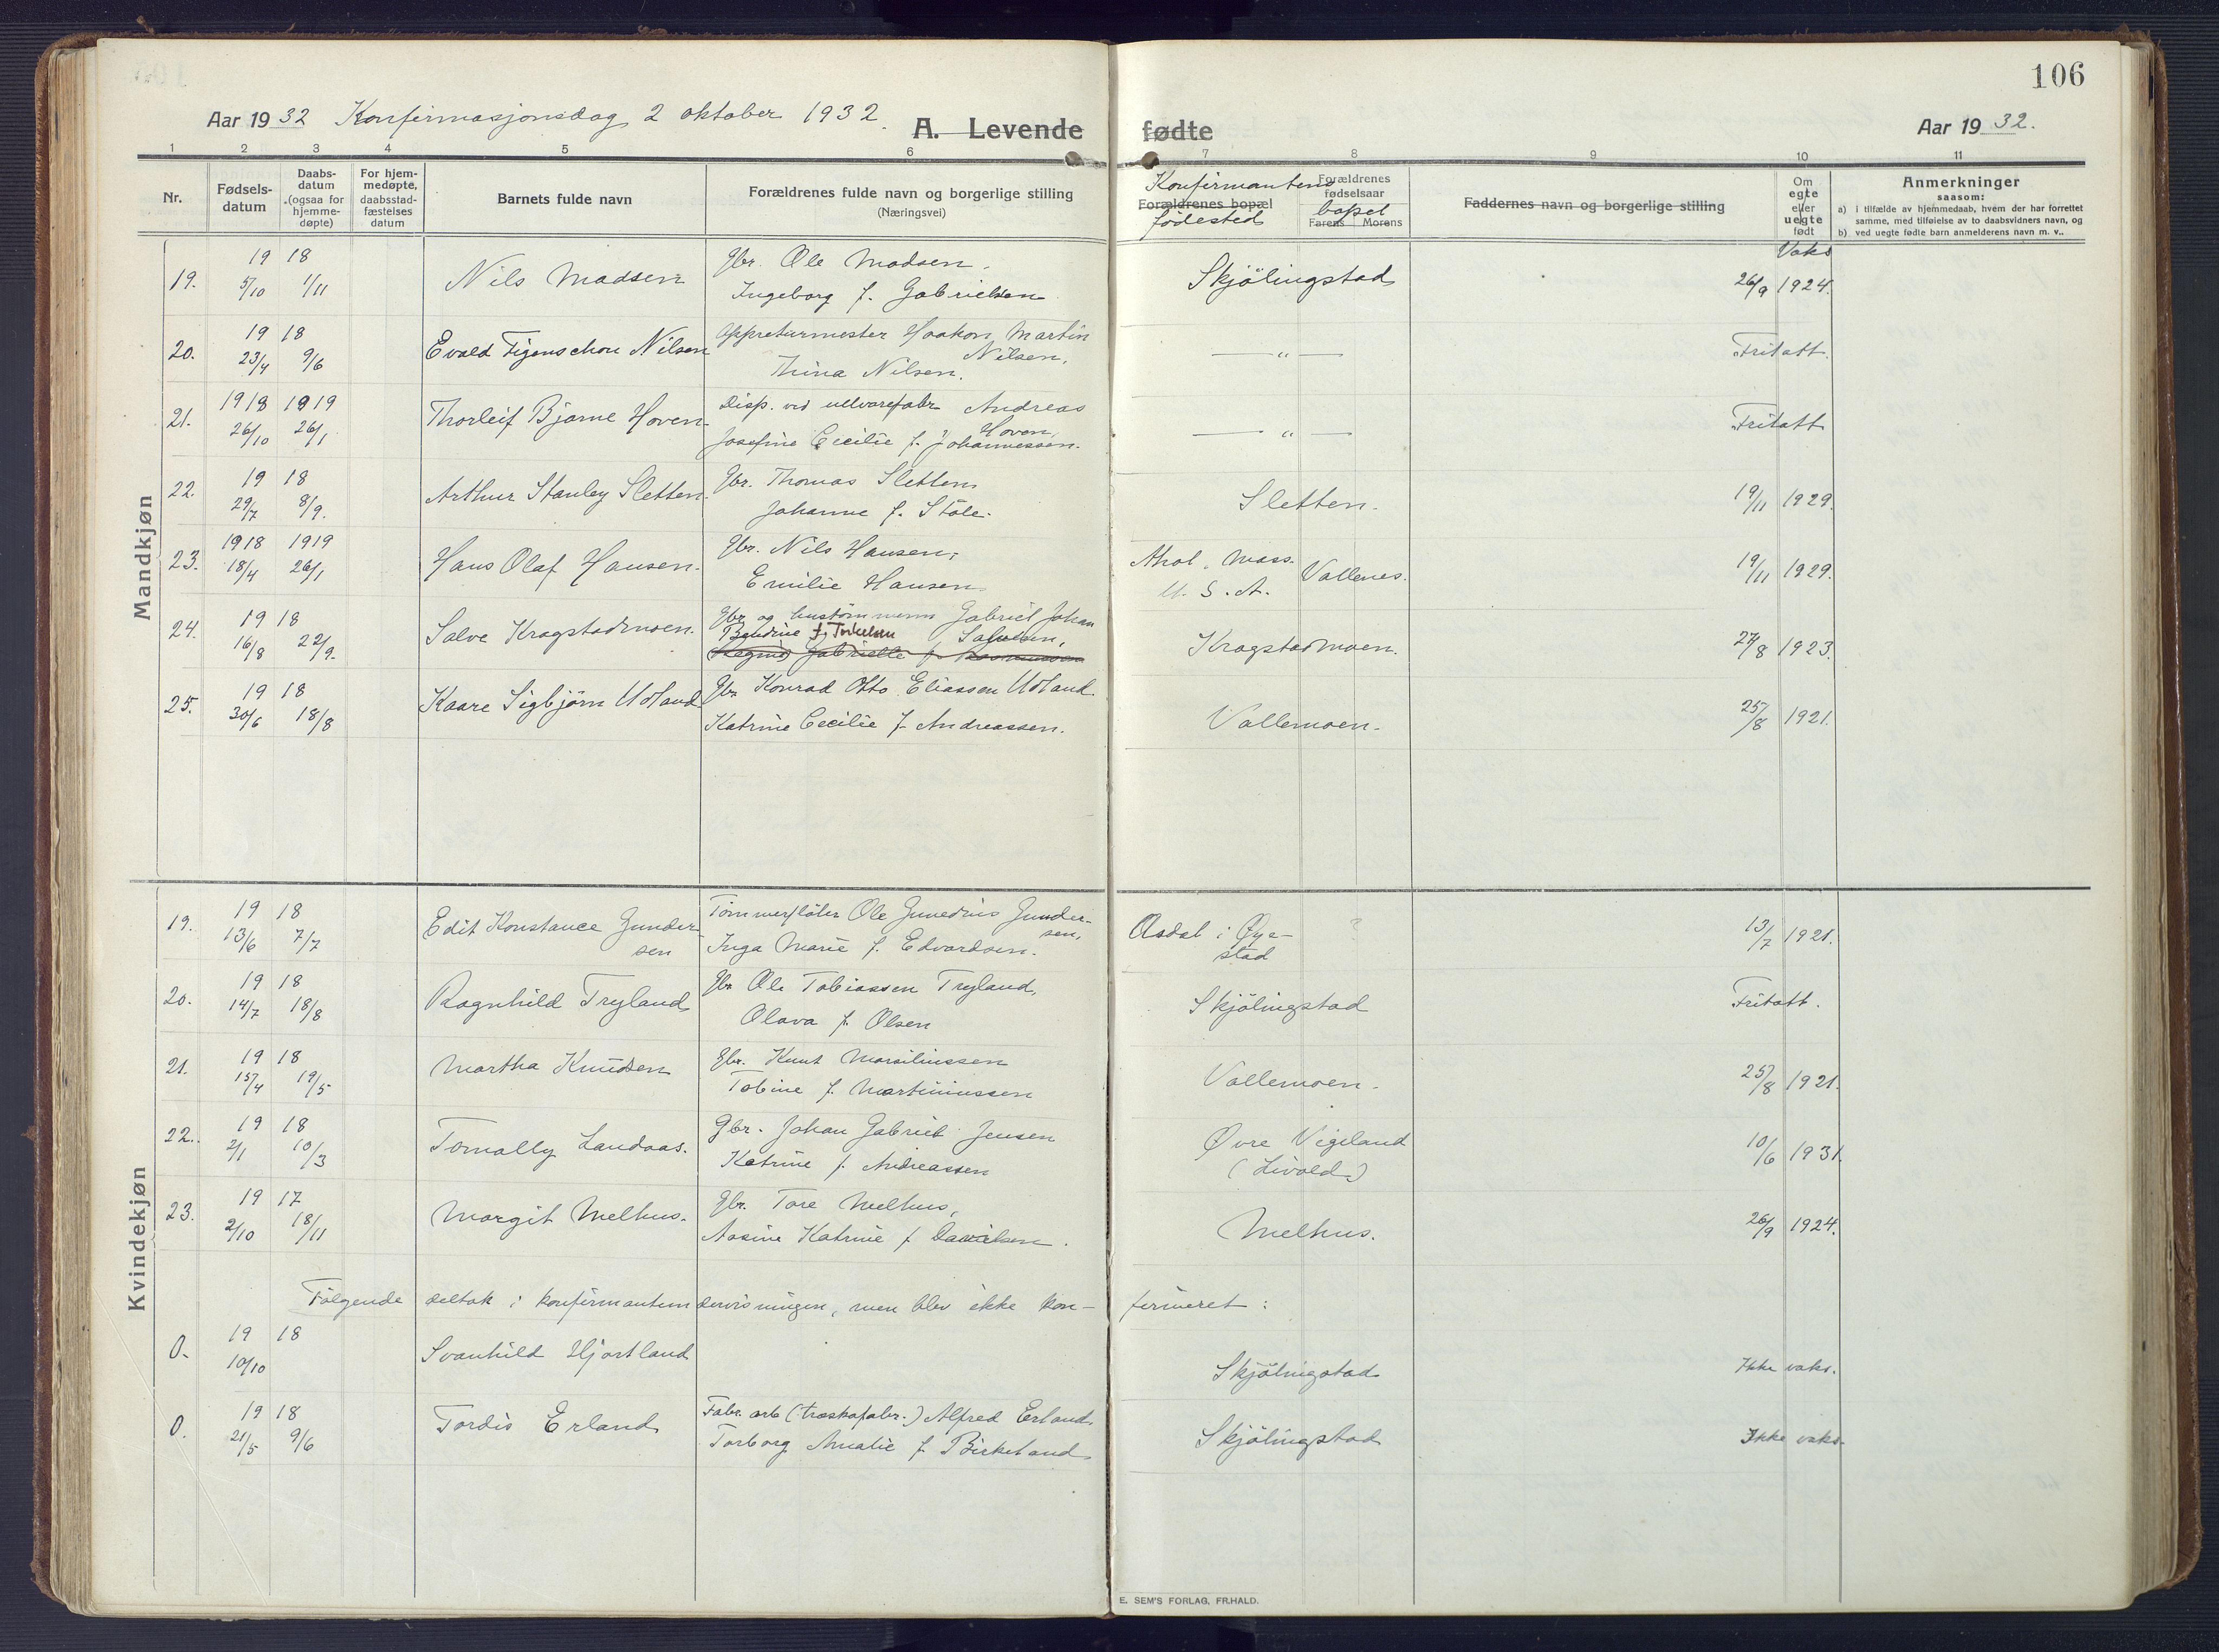 106
Aar 1932 Konfirmasjonsdag 2 oktober 1932. A. Levende fødte Aar 1932.
1 2 3 4 5 6 7 8 9 10 11
Nr.
Fødsels-
datum
Daabs-
datum
(ogsaa for
hjemme-
døpte)
For hjem-
medøpte,
daabsstad-
fæstelses
datum
Barnets fulde navn
Forældrenes fulde navn og borgerlige stilling
(Næringsvei)
Konfirmantens
Forældrenes bopæl
fødested
Forældrenes
fødselsaar
bopel
Farens Morens
Faddernes navn og borgerlige stilling
Om
egte
eller
uegte
født
Anmerkninger
saasom:
a) i tilfælde av hjemmedaab, hvem der har forrettet
samme, med tilføielse av to daabsvidners navn, og
b) ved uegte fødte barn anmelderens navn m. v..
Mandkjøn
Vaks
19. 1918 5/10 1/11 Nils Madsen Gbr. Ole Madsen,
Ingeborg f. Gabrielsen Skjölingstad 26/9 1924.
20. 1918 23/4 9/6 Evald Figenschou Nilsen Appreturmester Haakon Martin
Nilsen,
Trina Nilsen. — " — Fritatt.
21. 1918 1919 26/10 26/1 Thorleif Bjarne Hoven Disp. ved ullvarefabr. Andreas
Hoven,
Josefine Cecilie f. Johannessen. — " — Fritatt
22. 1918 29/7 8/9. Arthur Stanley Sletten. Gbr. Thomas Sletten
Johanne f. Støle. Sletten. 19/11 1929.
23. 1918 1919 18/4 26/1 Hans Olaf Hansen. Gbr. Nils Hansen,
Emilie Hansen Athol. Mass.
U. S. A. Vallenes. 19/11 1929.
24. 1918 16/8 22/9. Salve Kragstadmoen. Gbr. og hustømmerm Gabriel Johan
Bendine f. Torkelsen Salvesen,
Gabrielle f. Rasmussen Kragstadmoen. 27/8 1923.
25. 1918 30/6 18/8 Kaare Sigbjørn Udland Gbr. Konrad Otto Eliassen Udland.
Katrine Cecilie f. Andreassen. Vallemoen. 25/8 1921.
Kvindekjøn
19. 1918 13/6 7/7 Edit Konstance Gunder-
sen Tømmerfløter Ole Gunedius Gunder-
sen,
Inga Marie f. Edvardsen. Asdal i Øye-
stad ? 13/7 1921.
20. 1918 14/7 18/8 Ragnhild Tryland Gbr. Ole Tobiassen Tryland,
Olava f. Olsen Skjölingstad Fritatt.
21. 1918 15/4 19/5 Martha Knudsen Gbr. Knut Marsiliussen
Tobine f. Martiniussen Vallemoen. 25/8 1921.
22. 1918 2/1 10/3 Tomally Landaas. Gbr. Johan Gabriel Jensen
Katrine f. Andreassen Øvre Vigeland
(Livold) 10/6 1931.
23. 1917 2/10 18/11 Margit Melhus. Gbr. Tore Melhus,
Aasine Katrine f. Davidsen. Melhus. 26/9 1924.
Følgende deltok i konfirmantundervisningen, men blev ikke kon-firmeret:
0. 1918 10/10 Svanhild Hjortland Skjölingstad Ikke vaks.
0. 1918 21/5 9/6 Tordis Erland Fabr. arb (træskofabr.) Alfred Erland,
Torborg Amalie f. Birkeland Skjölingstad Ikke vaks.
E. SEM'S FORLAG, FR.HALD.